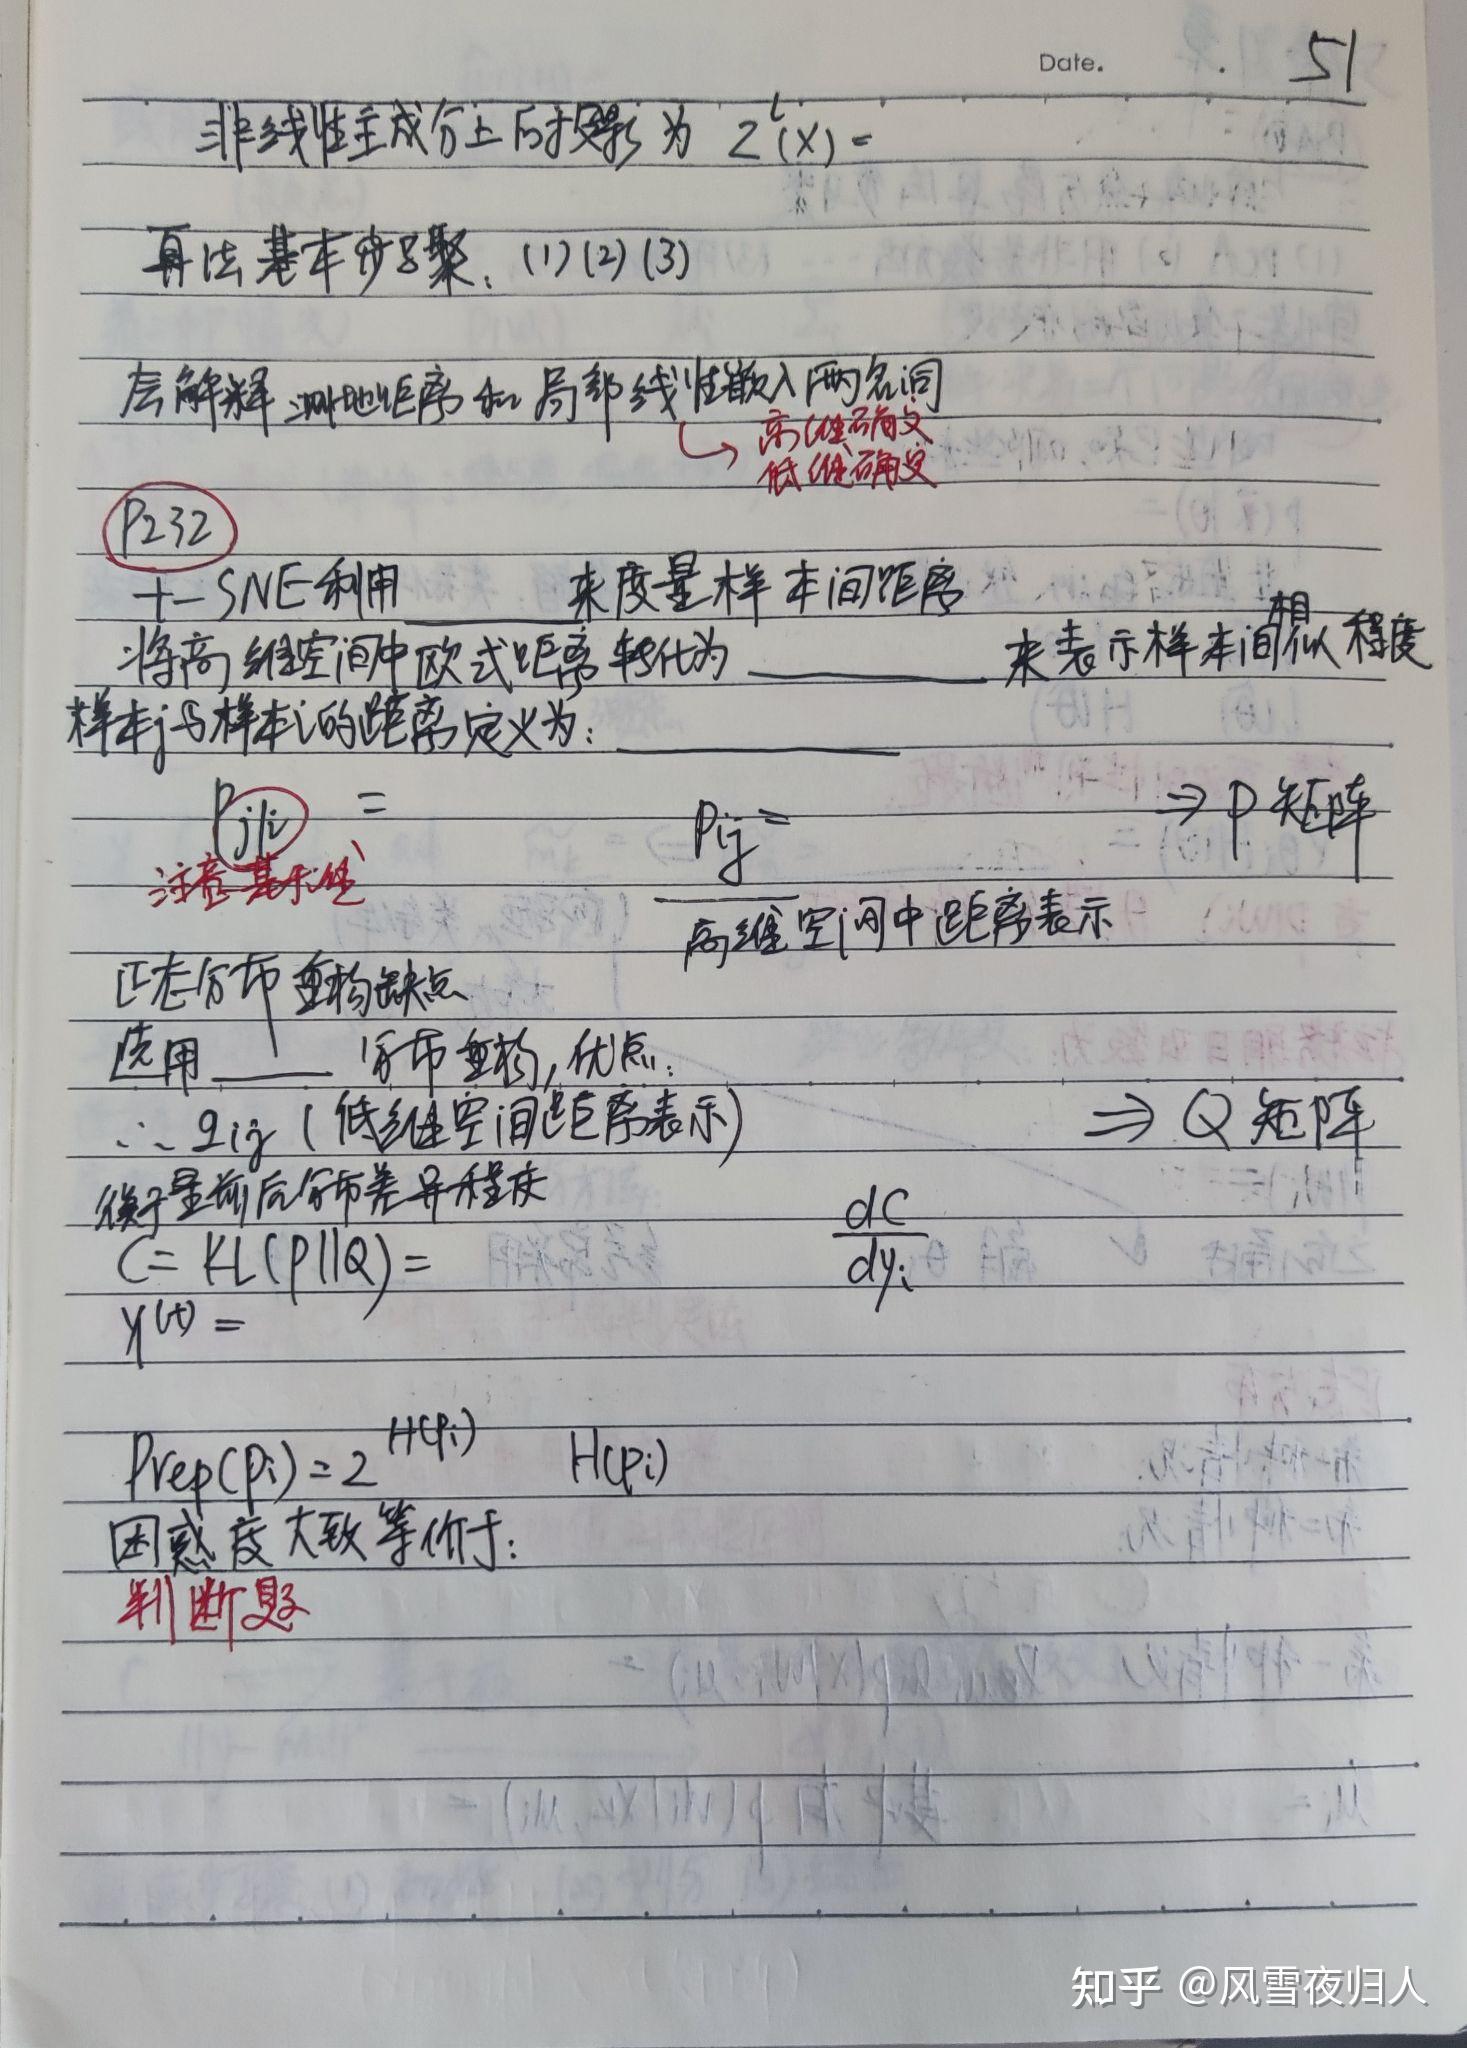 Date. 51
非线性主成分上的投影为 Z^l(X) =
算法基本步骤. (1) (2) (3)
会解释测地距离和局部线性嵌入两名词
高维确定
低维确定
P232
t-SNE利用______来度量样本间距离
将高维空间中欧式距离转化为______来表示样本间相似程度
样本j与样本i的距离定义为: ______
P_{j|i} = P_{ij} = ⇒ P矩阵
注意
高维空间中距离表示
正态分布重构缺点
选用____分布重构, 优点:
∴ q_{ij} (低维空间距离表示) ⇒ Q矩阵
量前后分布差异程度
C = KL(P||Q) = dC/dy_i
Y^{(t)} =
Prep(p_i) = 2^{H(p_i)} H(p_i)
困惑度大致等价于:
判断题
知乎 @风雪夜归人